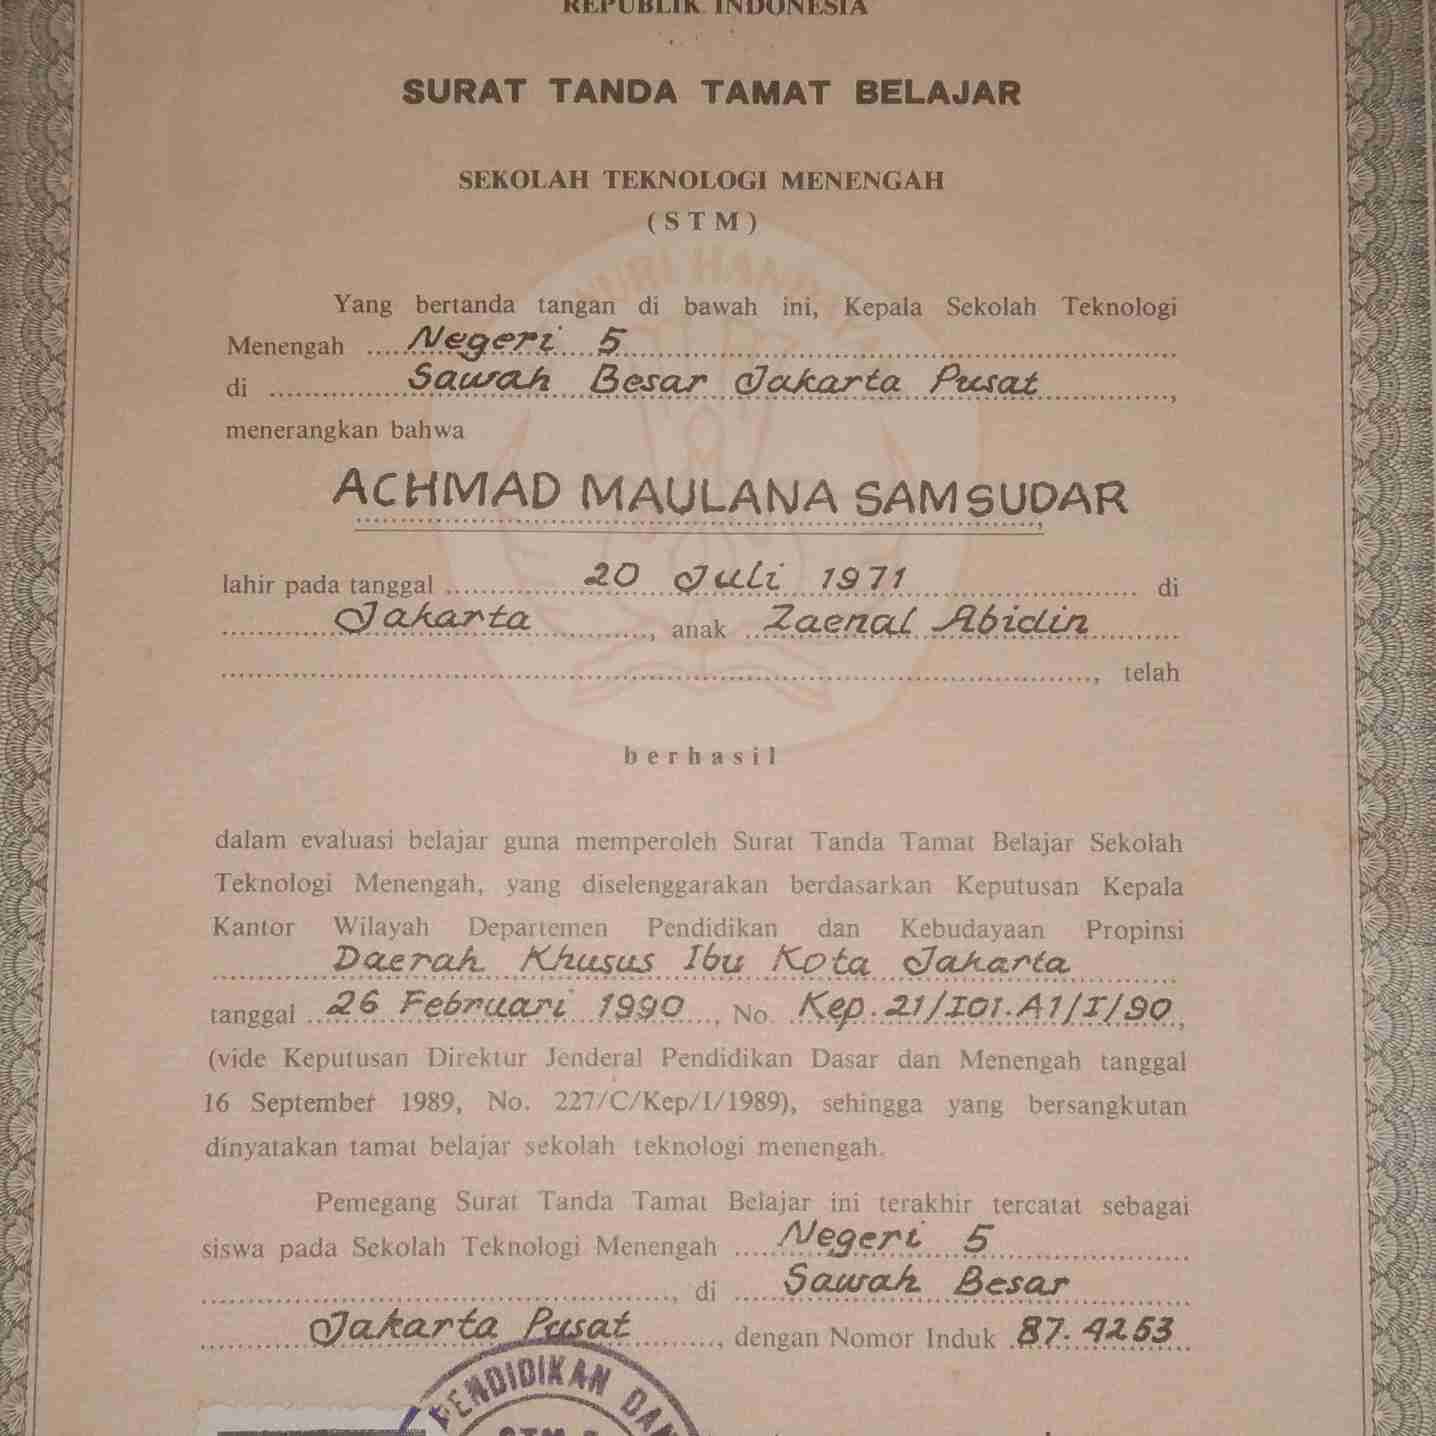 REPUBLIK INDONESIA
SURAT TANDA TAMAT BELAJAR
SEKOLAH TEKNOLOGI MENENGAH
(STM)
Yang bertanda tangan di bawah ini, Kepala Sekolah Teknologi
Menengah Negeri 5
di Sawah Besar Jakarta Pusat,
menerangkan bahwa
ACHMAD MAULANA SAMSUDAR,
lahir pada tanggal 20 Juli 1971 di
Jakarta, anak Zaenal Abidin
, telah
berhasil
dalam evaluasi belajar guna memperoleh Surat Tanda Tamat Belajar Sekolah
Teknologi Menengah, yang diselenggarakan berdasarkan Keputusan Kepala
Kantor Wilayah Departemen Pendidikan dan Kebudayaan Propinsi
Daerah Khusus Ibu Kota Jakarta
tanggal 26 Februari 1990, No. Kep.21/I01.A1/I/90,
(vide Keputusan Direktur Jenderal Pendidikan Dasar dan Menengah tanggal
16 September 1989, No. 227/C/Kep/I/1989), sehingga yang bersangkutan
dinyatakan tamat belajar sekolah teknologi menengah.
Pemegang Surat Tanda Tamat Belajar ini terakhir tercatat sebagai
siswa pada Sekolah Teknologi Menengah Negeri 5
, di Sawah Besar
Jakarta Pusat, dengan Nomor Induk 87.4253
PENDIDIKAN DAN
STM